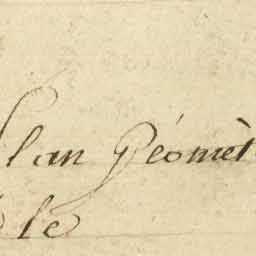 Plan Géomèt
le